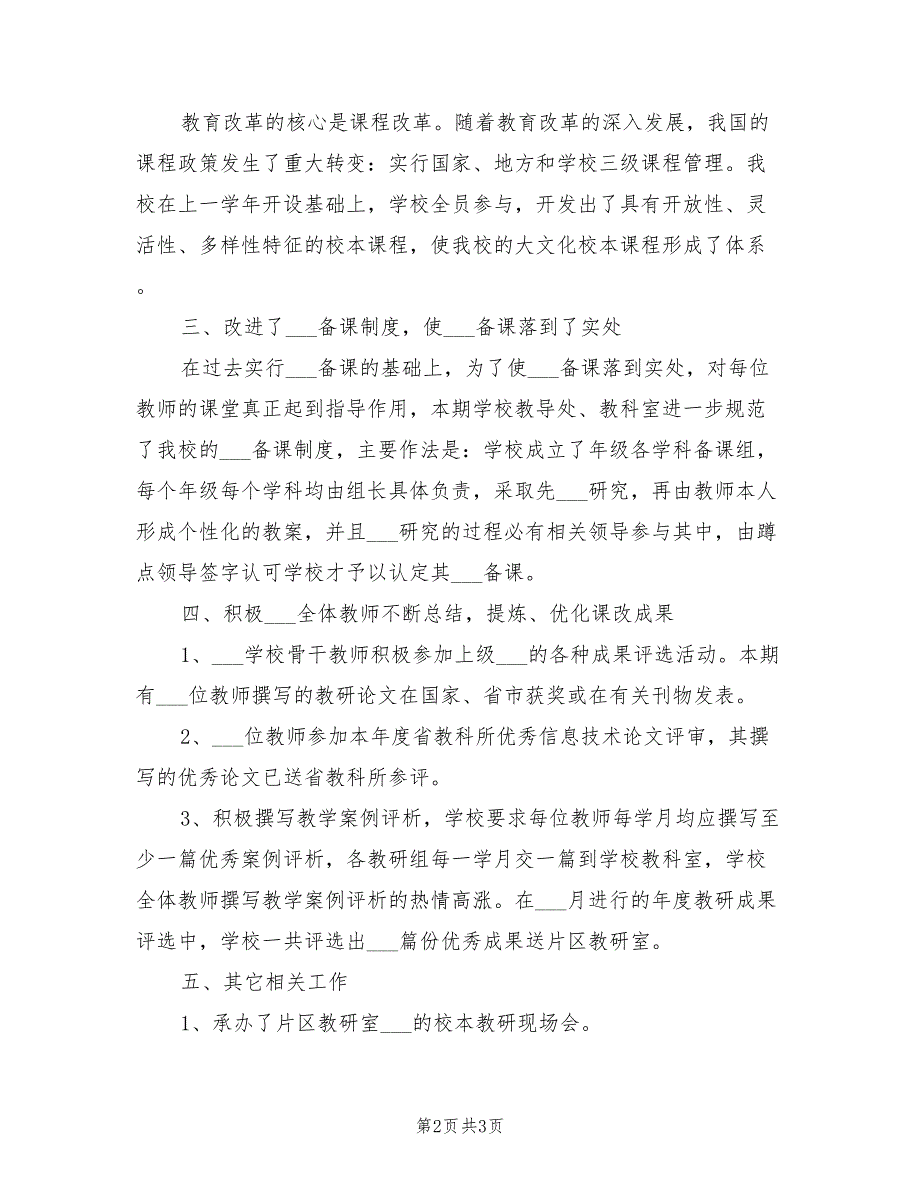 教育改革的核心是课程改革。随着教育改革的深入发展，我国的
课程政策发生了重大转变：实行国家、地方和学校三级课程管理。我
校在上一学年开设基础上，学校全员参与，开发出了具有开放性、灵
活性、多样性特征的校本课程，使我校的大文化校本课程形成了体系
。
三、改进了___备课制度，使___备课落到了实处
在过去实行___备课的基础上，为了使___备课落到实处，对每位
教师的课堂真正起到指导作用，本期学校教导处、教科室进一步规范
了我校的___备课制度，主要作法是：学校成立了年级各学科备课组，
每个年级每个学科均由组长具体负责，采取先___研究，再由教师本人
形成个性化的教案，并且___研究的过程必有相关领导参与其中，由蹲
点领导签字认可学校才予以认定其___备课。
四、积极___全体教师不断总结，提炼、优化课改成果
1、___学校骨干教师积极参加上级___的各种成果评选活动。本期
有___位教师撰写的教研论文在国家、省市获奖或在有关刊物发表。
2、___位教师参加本年度省教科所优秀信息技术论文评审，其撰
写的优秀论文已送省教科所参评。
3、积极撰写教学案例评析，学校要求每位教师每学月均应撰写至
少一篇优秀案例评析，各教研组每一学月交一篇到学校教科室，学校
全体教师撰写教学案例评析的热情高涨。在___月进行的年度教研成果
评选中，学校一共评选出___篇份优秀成果送片区教研室。
五、其它相关工作
1、承办了片区教研室___的校本教研现场会。
第2页 共3页